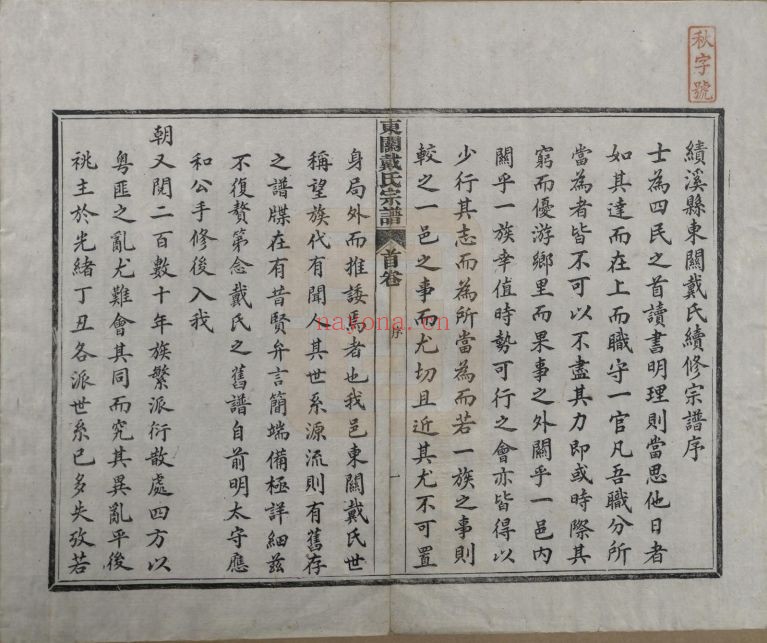 秋字號
績溪縣東關戴氏續修宗譜序
士為四民之首讀書明理則當思他日者
如其達而在上而職守一官凡吾職分所
當為者皆不可以不盡其力即或時際其
窮而優游鄉里而果事之外關乎一邑內
關乎一族幸值時勢可行之會亦皆得以
少行其志而為所當為而若一族之事則
較之一邑之事而尤切且近其尤不可置
東關戴氏宗譜
首卷
序
一
身局外而推諉焉者也我邑東關戴氏世
稱望族代有聞人其世系源流則有舊存
之譜牒在有昔賢弁言簡端備極詳細茲
不復贅第念戴氏之舊譜自前明太守應
和公手修後入我
朝又閱二百數十年族繁派衍散處四方以
粵匪之亂尤難會其同而究其異亂平後
祧主於光緒丁丑各派世系已多失攷若
nabona.cn